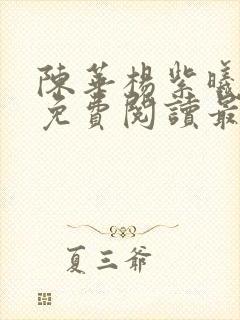 陳華楊紫曦
免費閱讀最
夏三爺